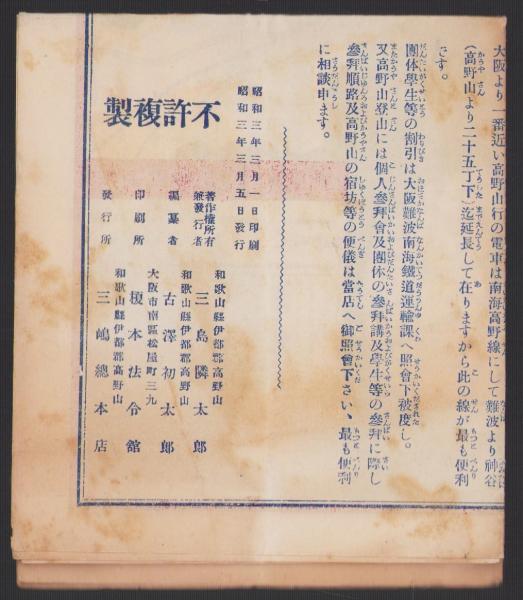 大阪より一番近い高野山行の電車は南海高野線にして難波より神谷
(高野山より二十五丁下)迄延長して在りますから此の線が最も便利
です。
團体學生等の割引は大阪難波南海鐵道運輸課へ照會下被度し。
又高野山登山には個人參拜會及團体の參拜講及學生等の參拜に際し
參拜順路及高野山の宿坊等の便儀は當店へ御照會下さい、最も便利
に相談申ます。
昭和三年三月一日印刷
昭和三年三月五日發行
不許複製
和歌山縣伊都郡高野山
著作權所有
兼發行者
三島隣太郎
和歌山縣伊都郡高野山
編纂者
古澤初太郎
大阪市南區松屋町三九
印刷所
榎本法令舘
和歌山縣伊都郡高野山
發行所
三嶋總本店